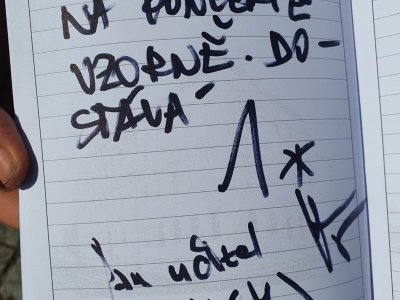 NA KONCERTĚ
VZORNĚ. DO-
STÁVÁ
1*
učitel